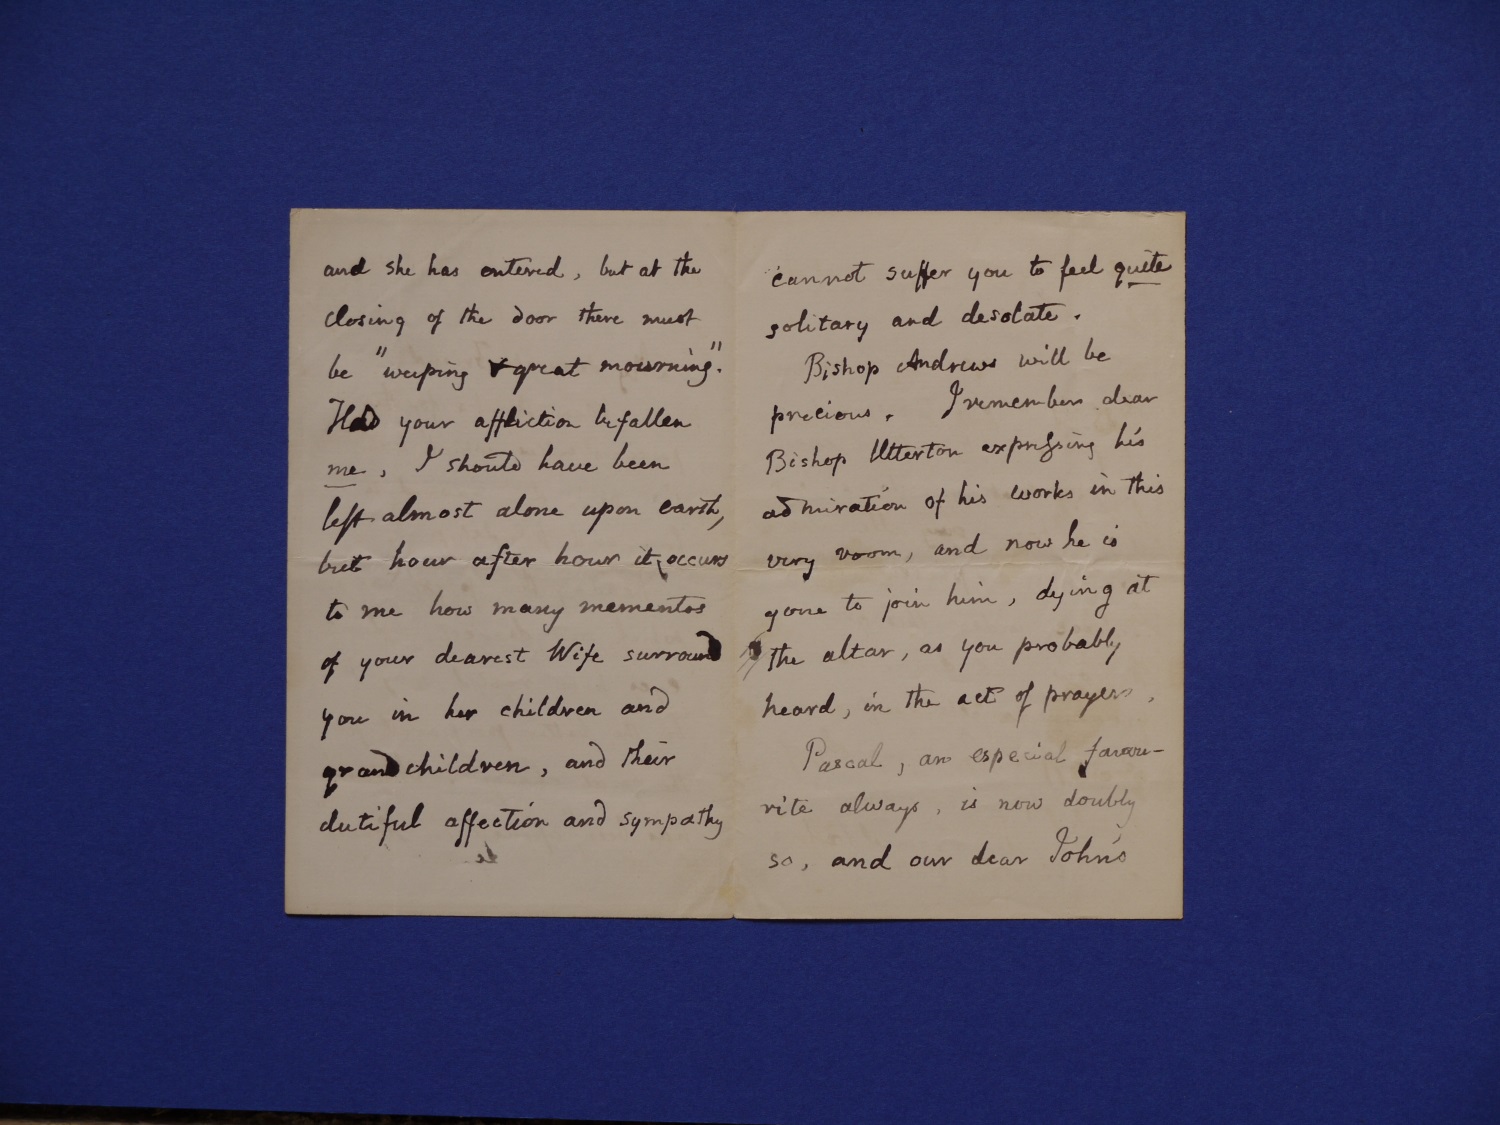 and she has entered, but at the
closing of the door there must
be "weeping & great mourning".
Had your affliction befallen
me, I should have been
left almost alone upon earth,
but hour after hour it occurs
to me how many mementos
of your dearest Wife surround
you in her children and
grandchildren, and their
dutiful affection and sympathy
cannot suffer you to feel quite
solitary and desolate.
Bishop Andrews will be
precious. I remember dear
Bishop Utterton expressing his
admiration of his works in this
very room, and now he is
gone to join him, dying at
the altar, as you probably
heard, in the act of prayer.
Pascal, an especial favou-
rite always, is now doubly
so, and our dear John's